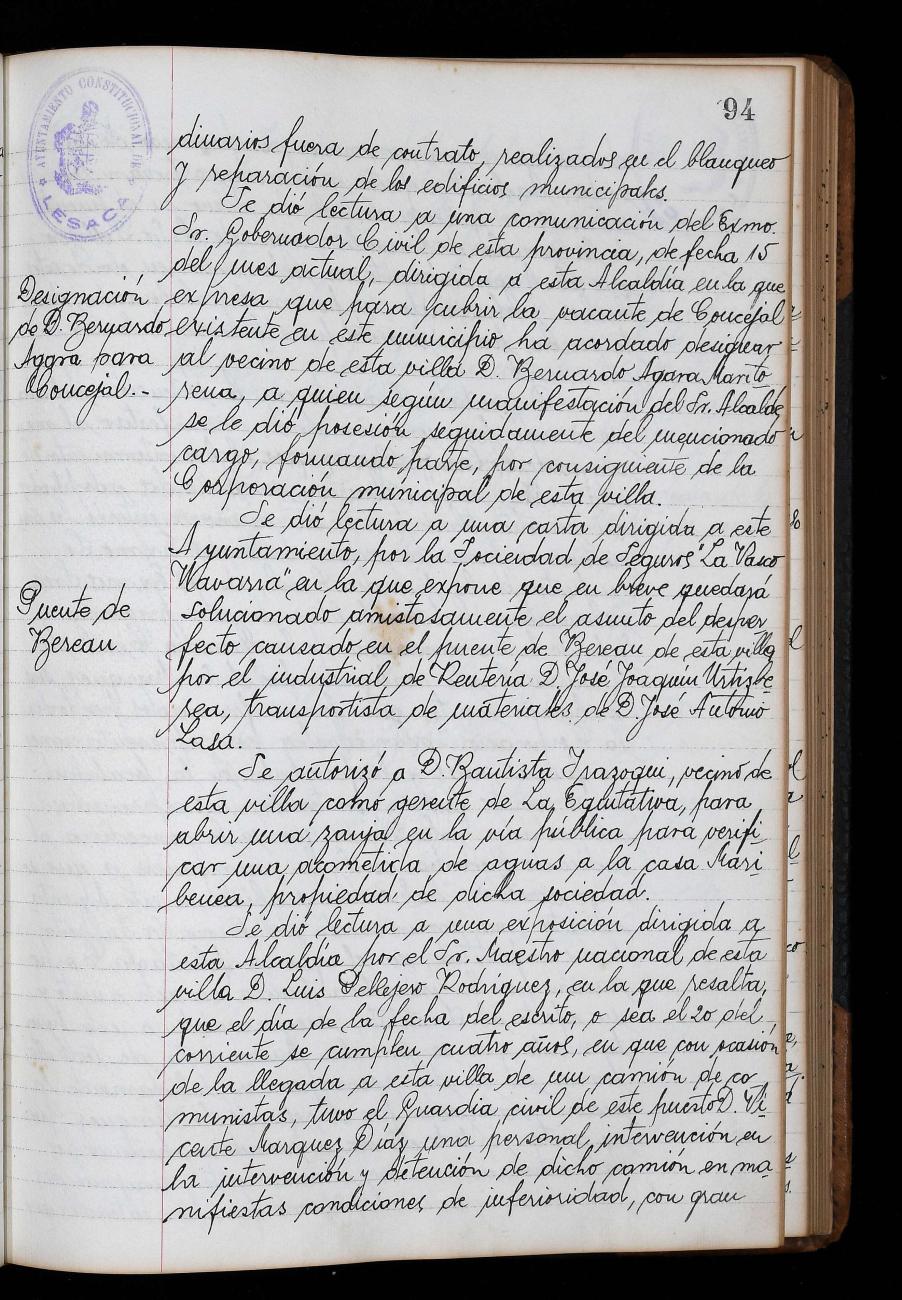 94
AYUNTAMIENTO CONSTITUCIONAL DE
LESACA
dinarios fuera de contrato, realizados en el blanqueo
y reparación de los edificios municipales.
Se dió lectura a una comunicación del Exmo.
Sr. Gobernador Civil de esta provincia, de fecha 15
del mes actual, dirigida a esta Alcaldía en la que
Designación
de D. Bernardo
Aggra para
Concejal.-
expresa que para cubrir la vacante de Concejal
existente en este municipio ha acordado designar
al vecino de esta villa D. Bernardo Agara Marito
rena, a quien según manifestación del Sr. Alcalde
se le dió posesión seguidamente del mencionado
cargo, formando parte, por consiguiente de la
Corporación municipal de esta villa.
Se dió lectura a una carta dirigida a este
Ayuntamiento, por la Sociedad de Seguros "La Vasco
Navarra" en la que expone que en breve quedará
Puente de
Bereau
solucionado amistosamente el asunto del desper
fecto causado en el puente de Bereau de esta villa
por el industrial de Rentería D. José Joaquín Urtizbe
rea, transportista de materiales de D. José Antonio
Lasa.
Se autorizó a D. Bautista Irazoqui, vecino de
esta villa como gerente de La Equitativa, para
abrir una zanja en la vía pública para verifi-
car una acometida de aguas a la casa Mari-
benea, propiedad de dicha sociedad.
Se dió lectura a una exposición dirigida a
esta Alcaldía por el Sr. Maestro nacional de esta
villa D. Luis Pellejero Rodríguez, en la que resalta,
que el día de la fecha del escrito, o sea el 20 del
corriente se cumplen cuatro años, en que con ocasión
de la llegada a esta villa de un camión de co-
munistas, tuvo el Guardia civil de este puesto D. Vi-
cente Marquez Díaz una personal intervención en
la intervención y detención de dicho camión en ma-
nifiestas condiciones de inferioridad, con gran